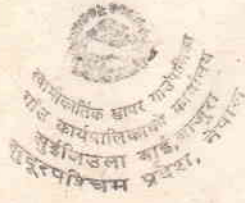 स्वामीकार्तिक खापर गाउँपालिका
गाउँ कार्यपालिकाको कार्यालय
बाजुरा
सुदूरपश्चिम प्रदेश, नेपाल